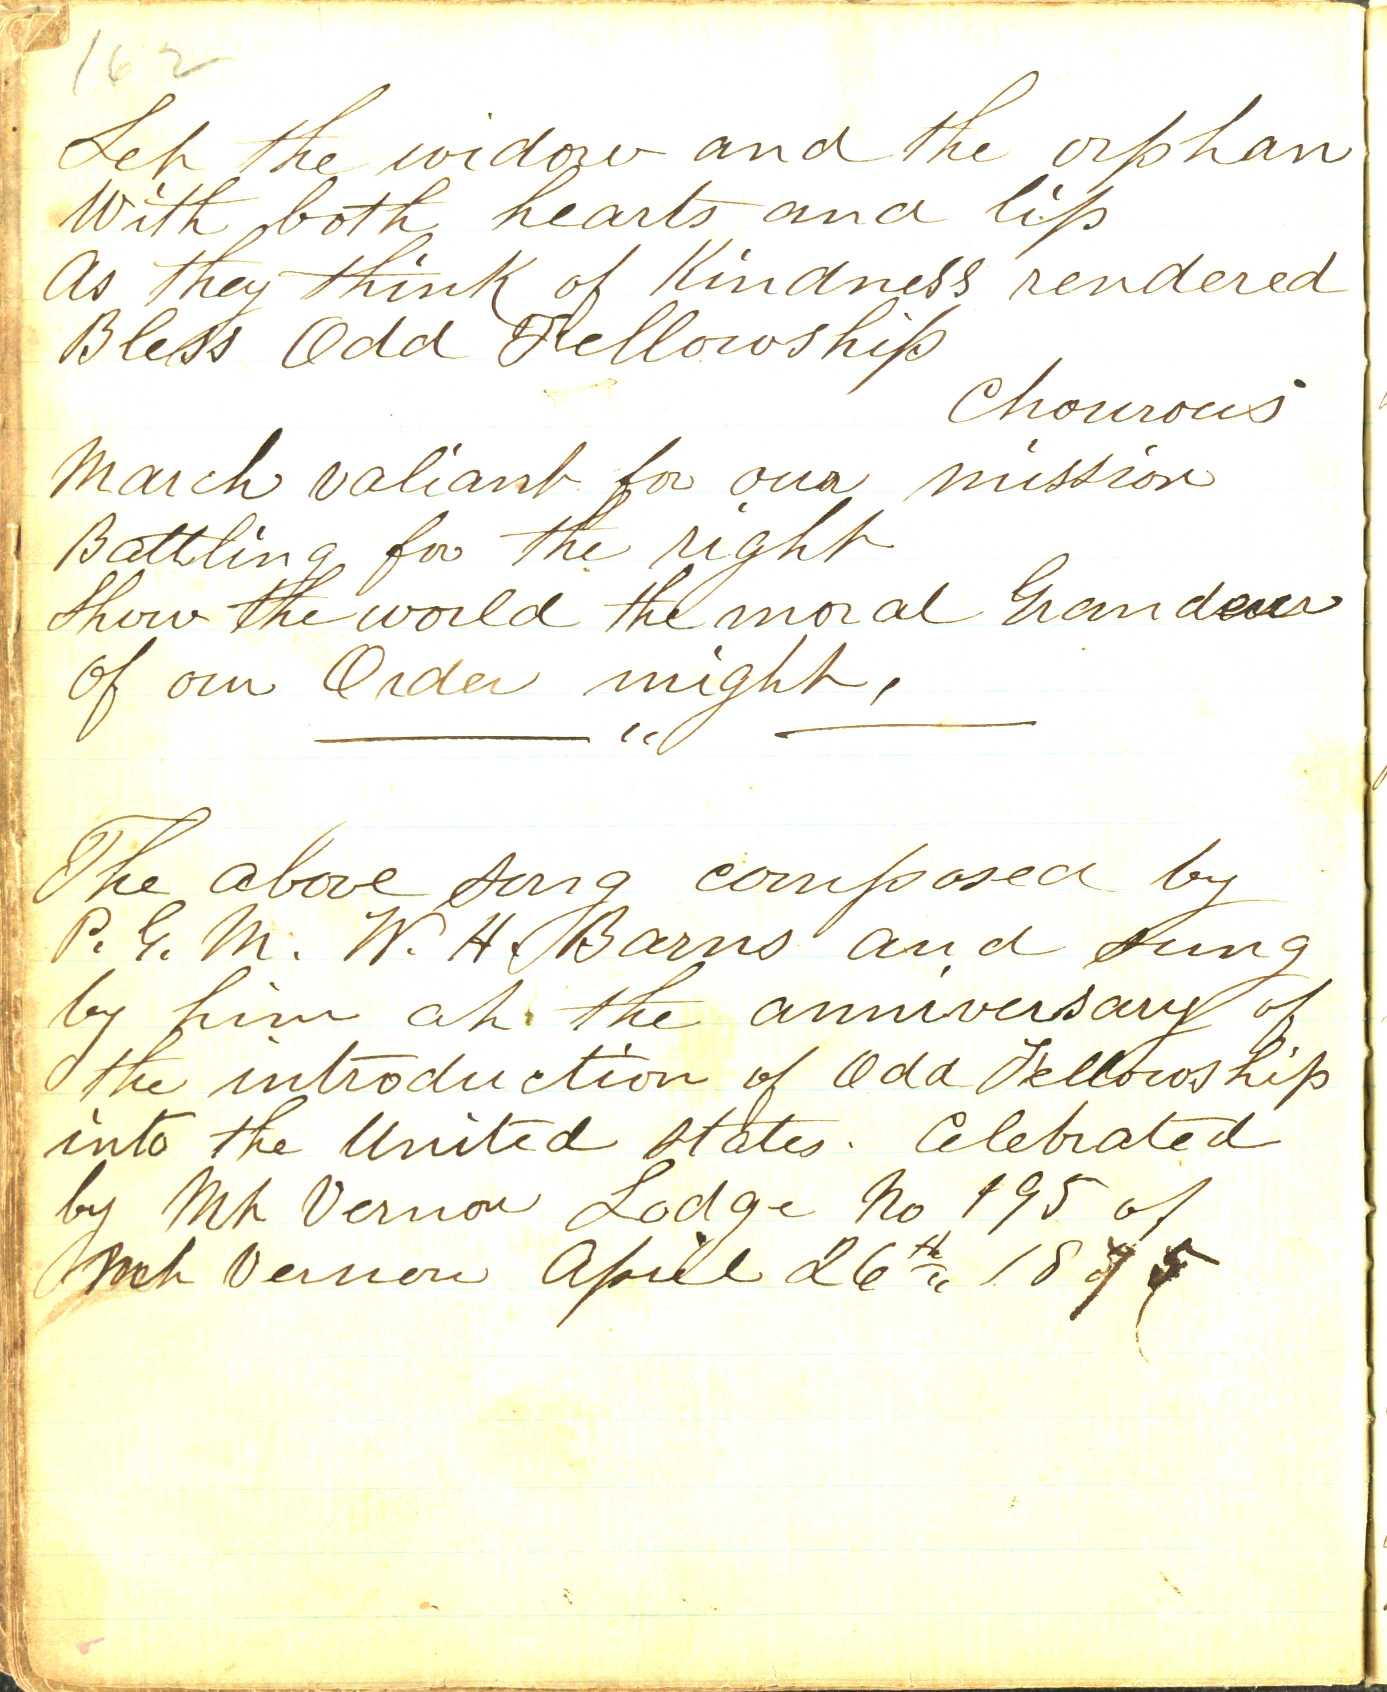 162
Let the widow and the orphan
With both hearts and lip
As they think of Kindness rendered
Bless Odd Fellowship
Chourous
March valiant for our mission
Battling for the right
Show the world the moral Grandeur
Of our Order might,
"
The above song composed by
P. G. M. W. H. Barns and sung
by him at the anniversary of
the introduction of Odd Fellowship
into the United states. Celebrated
by Mt Vernon Lodge No 195 of
Mt Vernon April 26th 1875